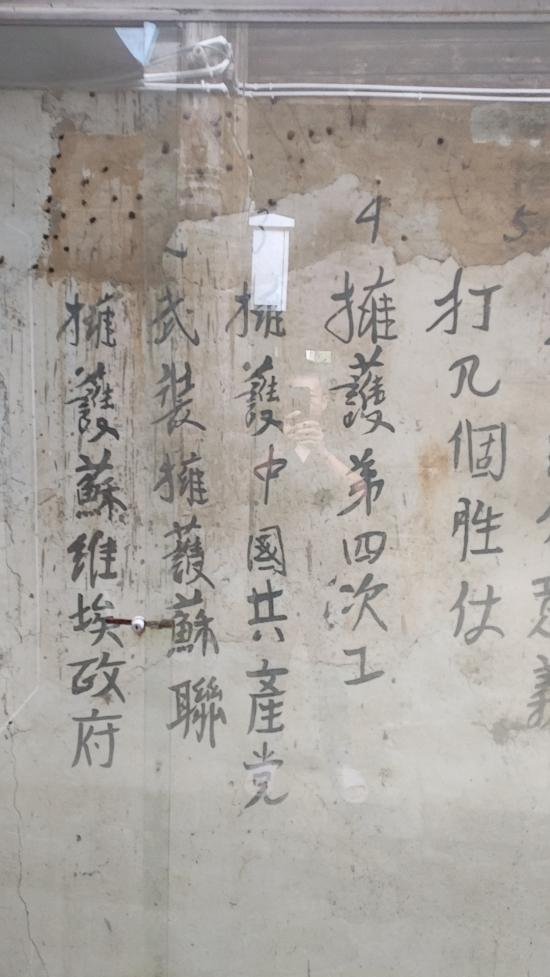 擁護蘇維埃政府
武裝擁護蘇聯
3 擁護中國共產党
4 擁護第四次工
打几個胜仗
5